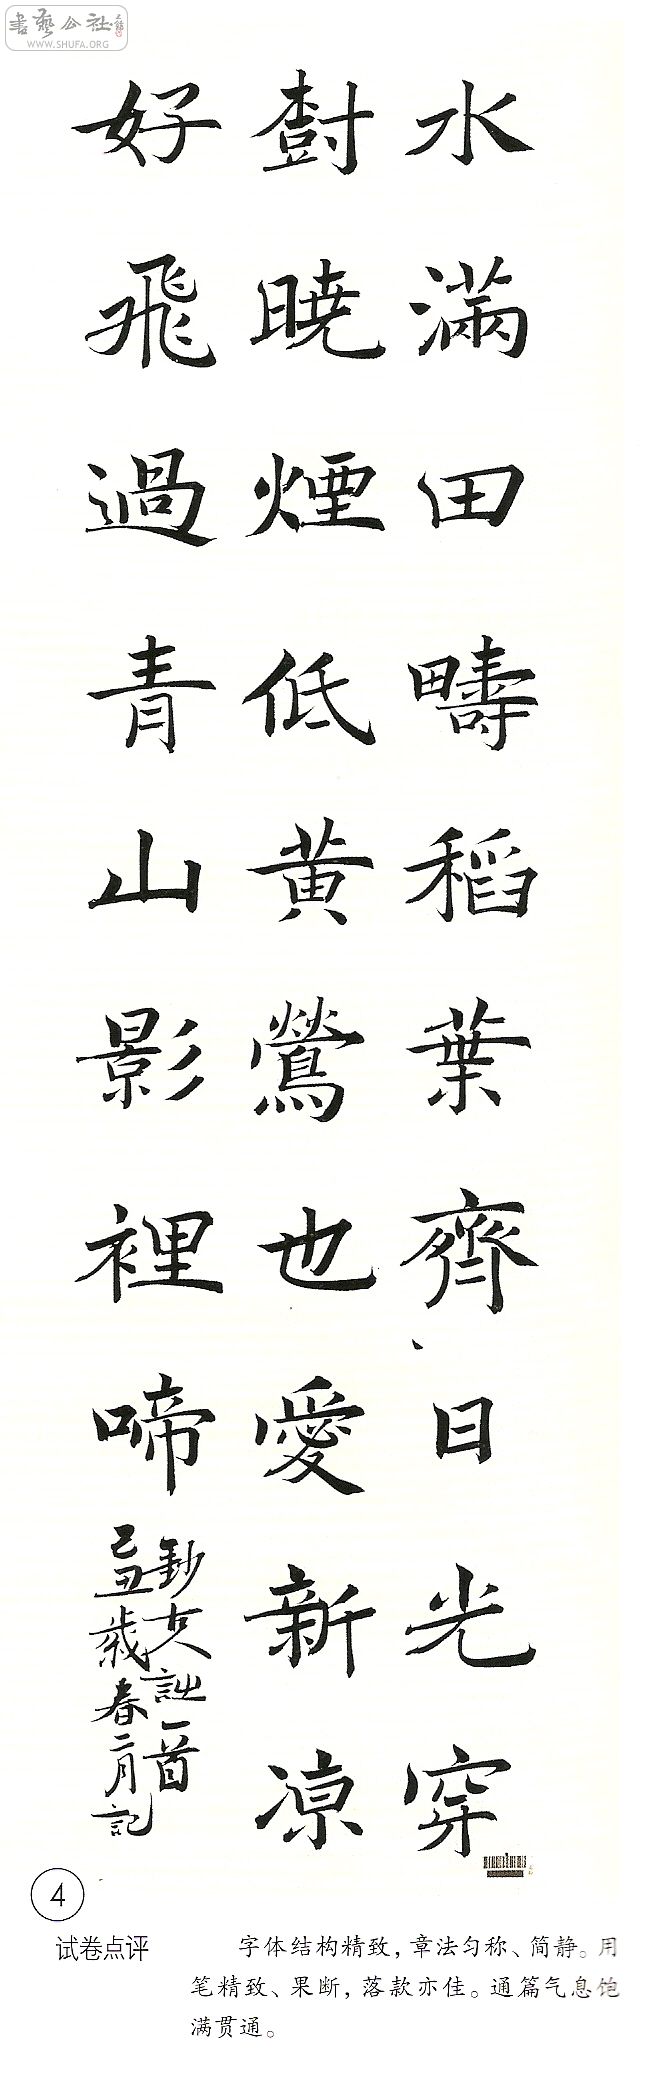 書藝公社
WWW.SHUFA.ORG
水滿田疇稻葉齊日光穿
樹曉煙低黃鶯也愛新凉
好飛過青山影裡啼
鈔古人詩一首
己丑歲春二月記
4
试卷点评
字体结构精致，章法匀称、简静。用
笔精致、果断，落款亦佳。通篇气息饱
满贯通。